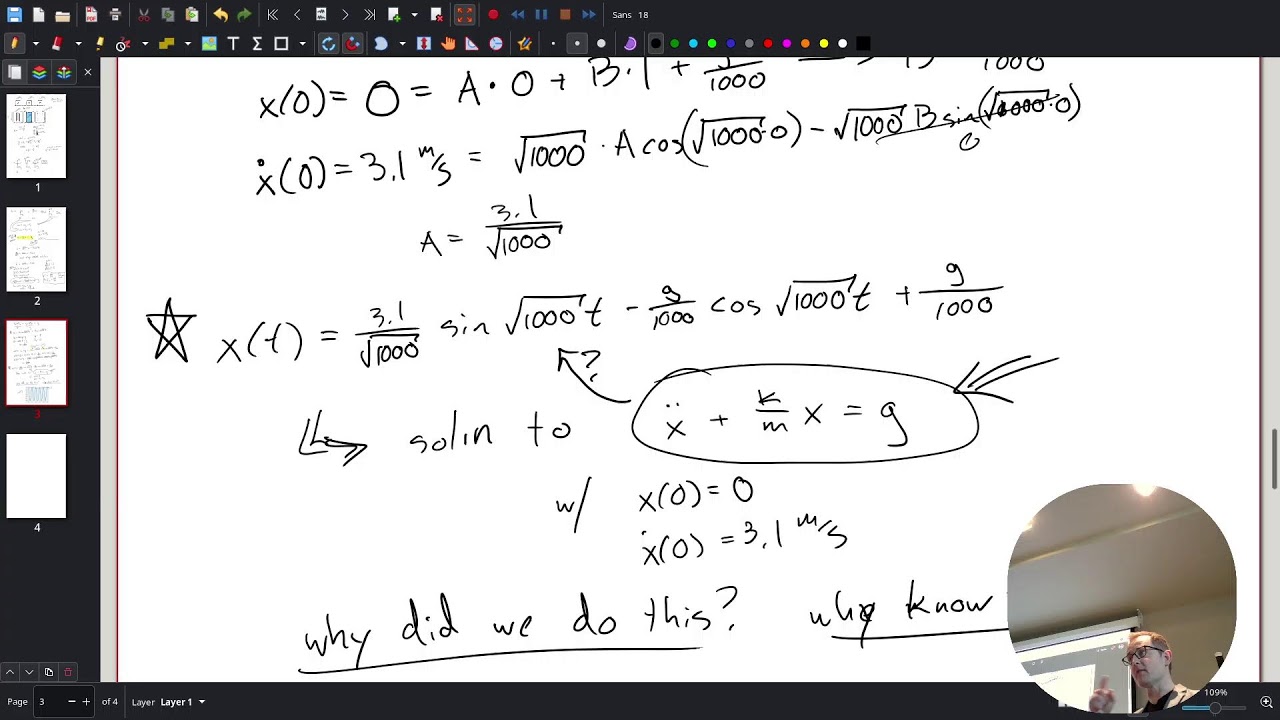 Sans 18
x(0) = 0 = A · 0 + B · 1 + g/1000
1000
ẋ(0) = 3.1 m/s = √1000 · A cos(√1000 · 0) − √1000 B sin(√1000 · 0)
0
A = 3.1/√1000
☆ x(t) = 3.1/√1000 sin √1000 t − g/1000 cos √1000 t + g/1000
?
↳ sol'n to ẍ + k/m x = g
w/ x(0) = 0
ẋ(0) = 3.1 m/s
why did we do this? why know
1
2
3
4
Page 3 of 4 Layer Layer 1
109%